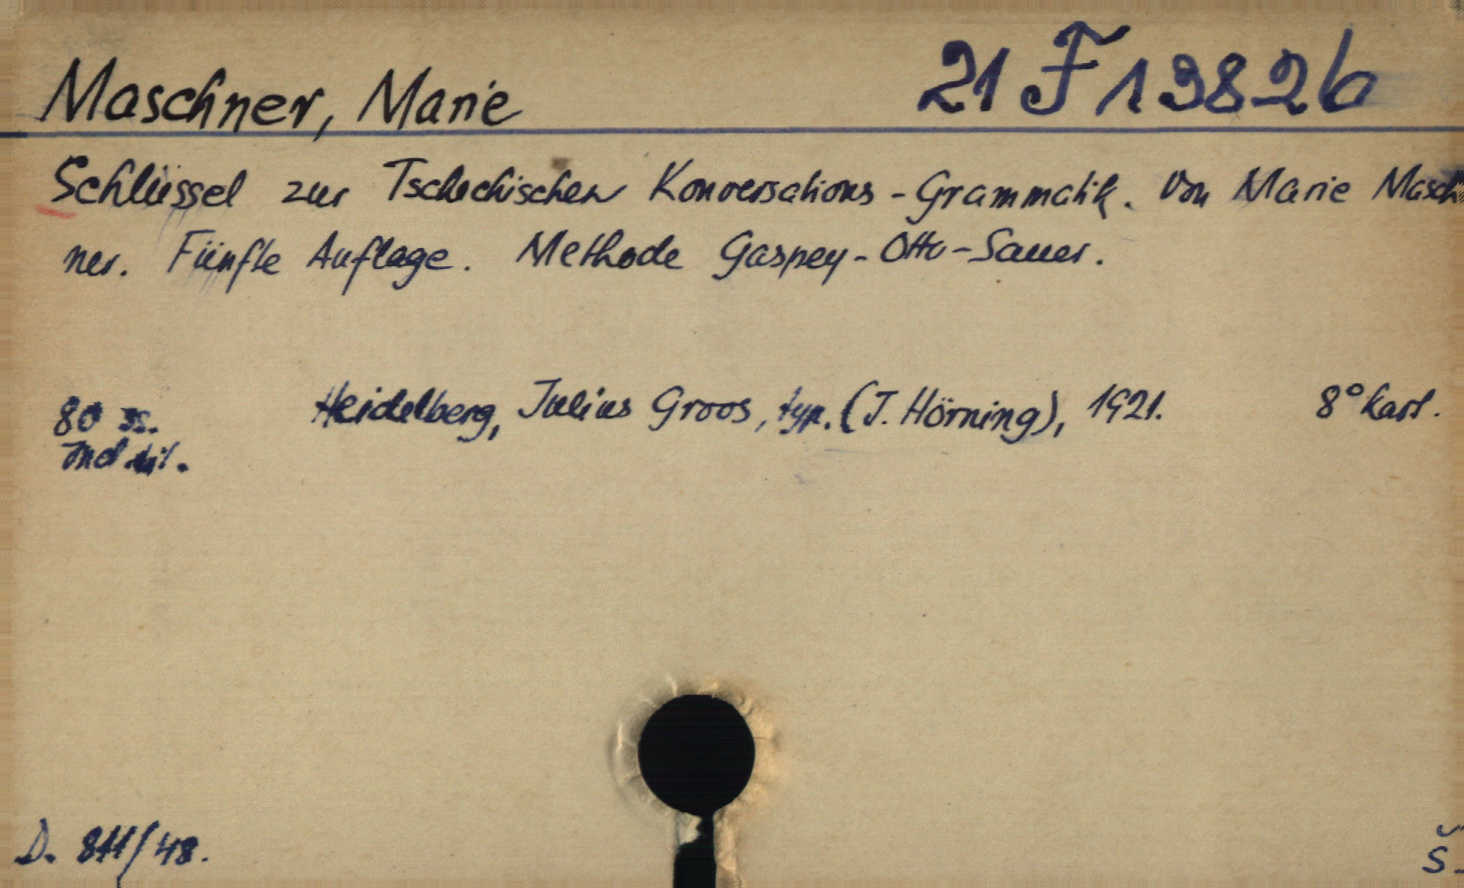 Maschner, Marie 21 F 1382b
Schlüssel zur Tschechischen Konversations-Grammatik. Von Marie Masch
ner. Fünfte Auflage. Methode Gaspey-Otto-Sauer.
80 ss. Heidelberg, Julius Groos, typ. (J. Hörning), 1921. 8° kart.
D. 811/48. Š